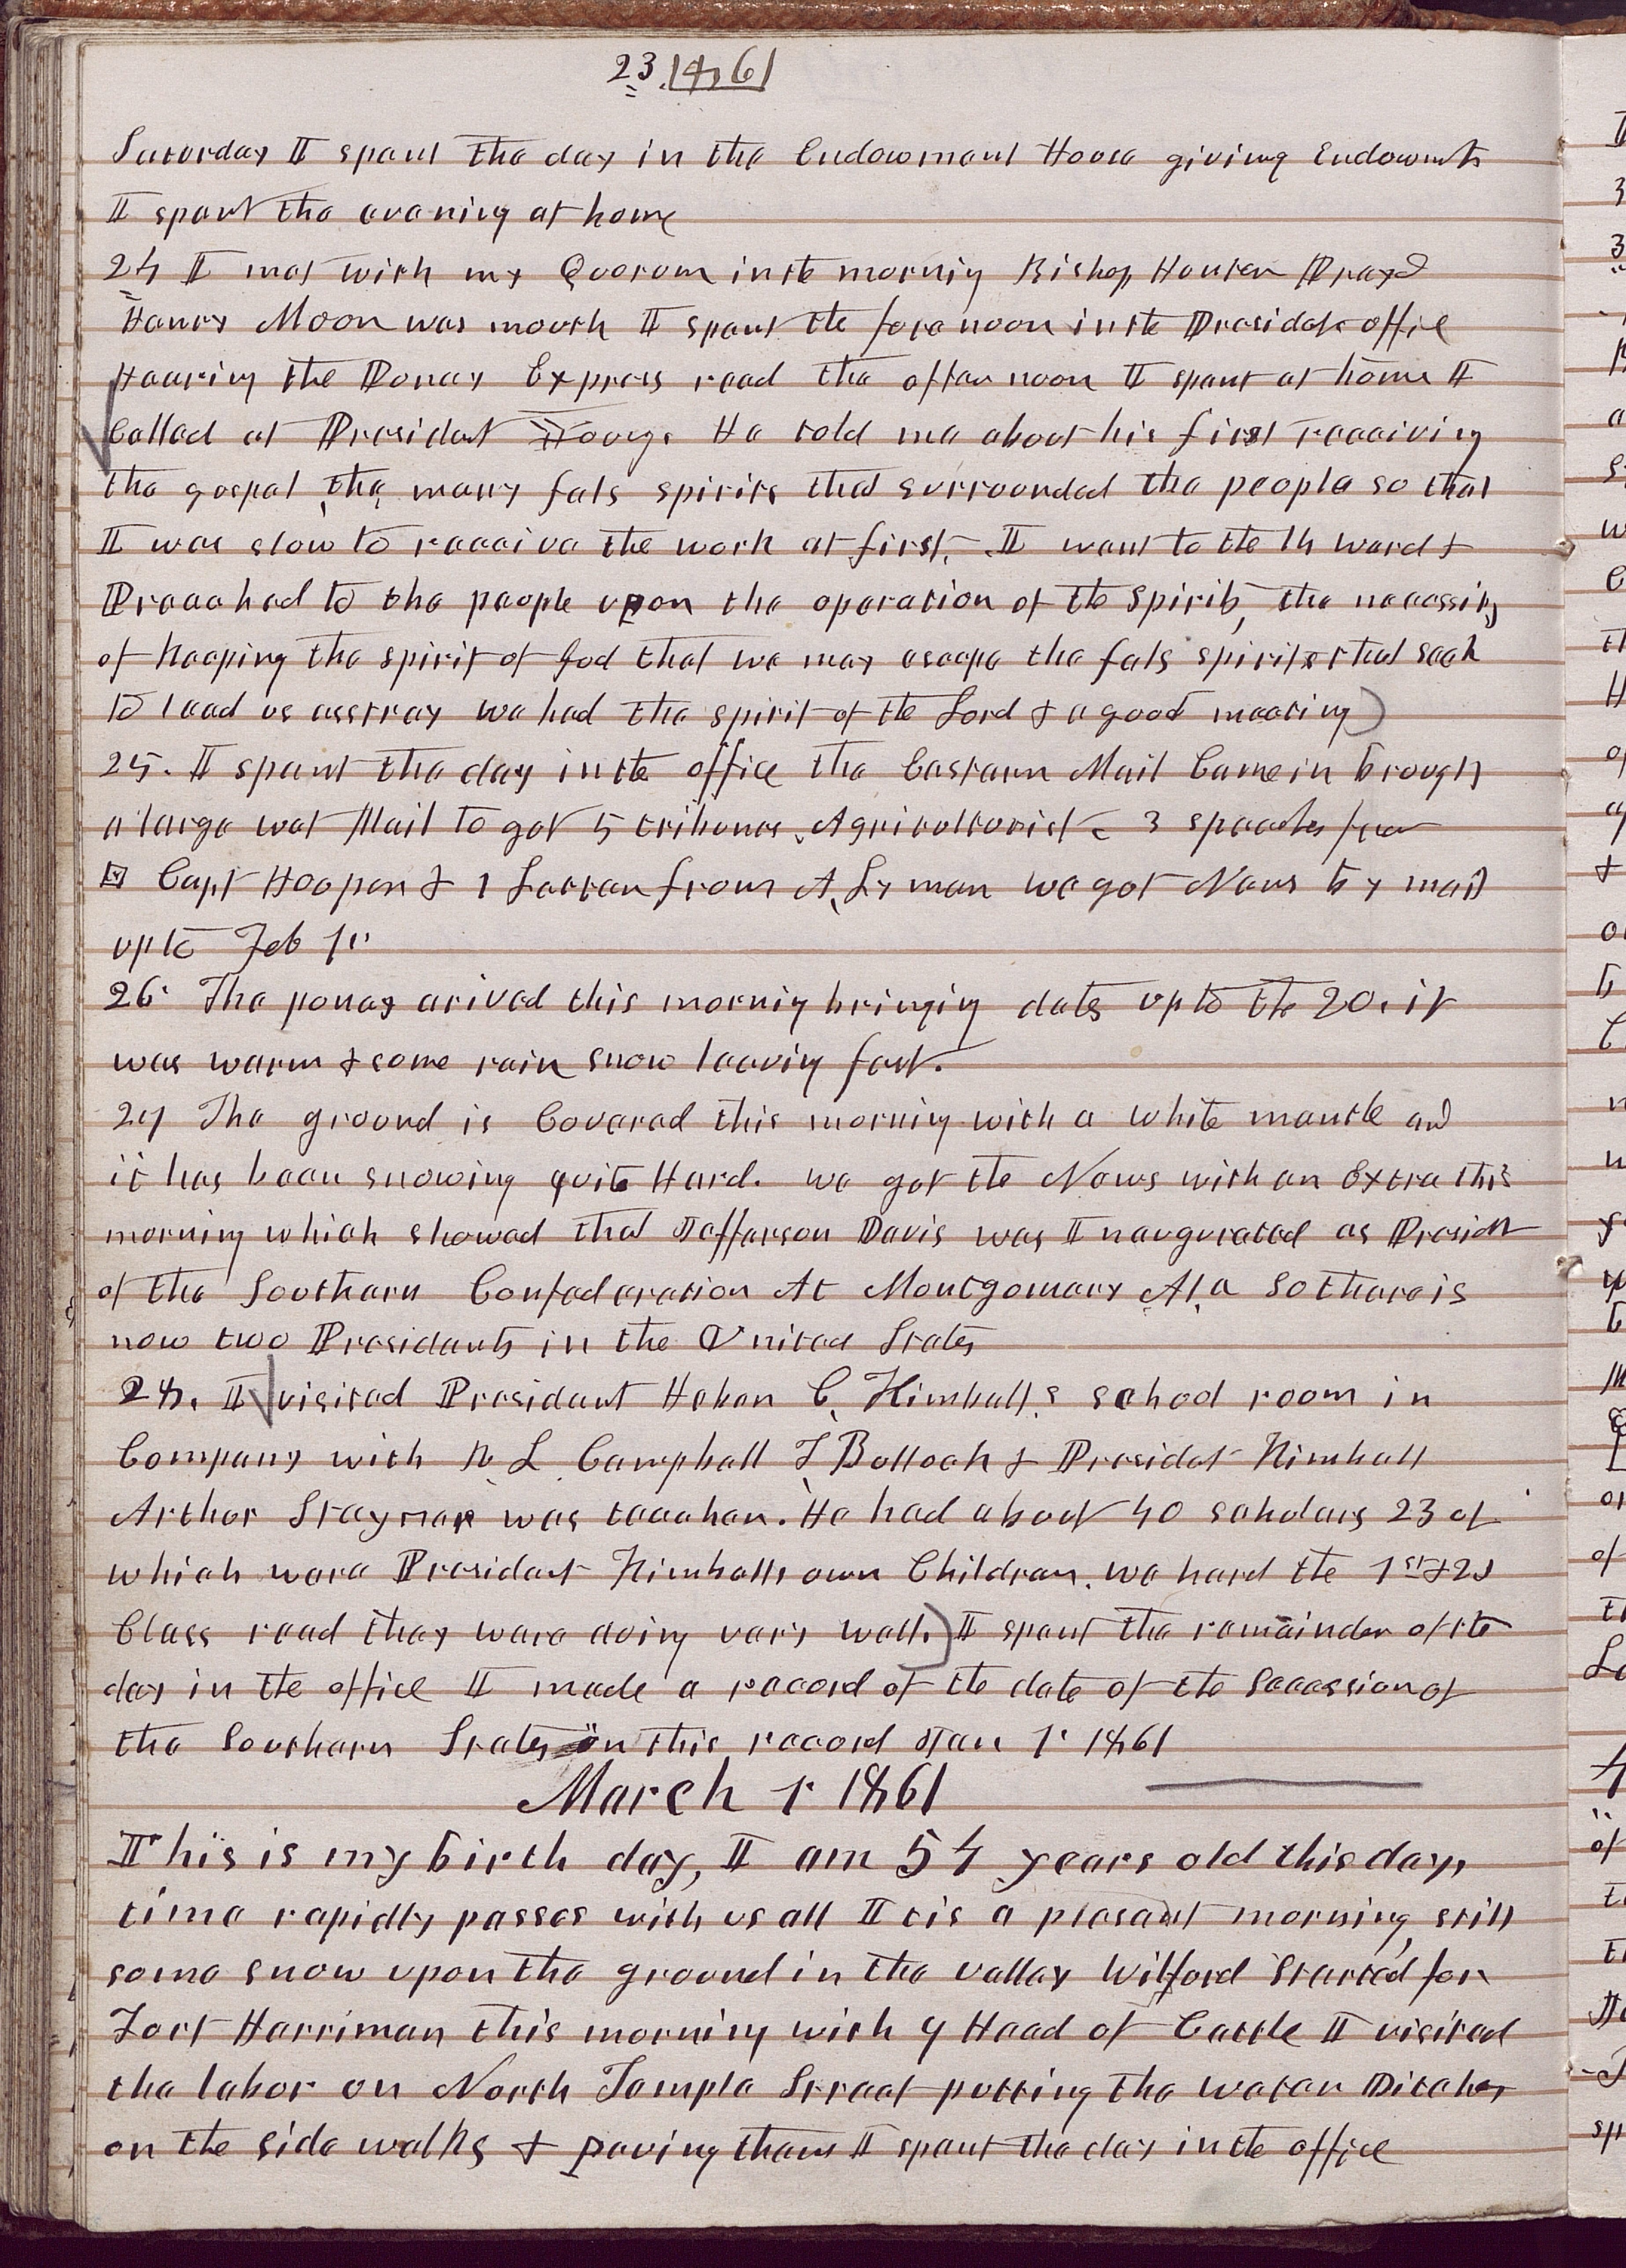 23 1861
Saturday I spent the day in the Endowment House giving Endowmts
I spent the evening at home
24 I met with my Quorum in the morning Bishop Hunter Prayd
Henry Moon was mouth I spent the fore noon in the Presidets office
Hearing the Poney Express read the after noon I spent at home I
Called at President Youngs He told me about his first receiving
the gospel, the many fals spirits that surrounded the people so that
I was slow to receive the work at first. I went to the 14 ward &
Preached to the people upon the operation of the spirits, the necessity
of keeping the spirit of God that we may escape the fals spirits that seek
to lead us asstray we had the spirit of the Lord & a good meeting
25. I spent the day in the office the Eastern Mail Came in brough
a large wet Mail to got 5 tribunes, Agriculturist 3 speeches from
Capt Hooper & 1 Letter from A, Lyman we got News by mail
up to Feb 1st
26 The poney arived this mornig bringing dates up to the 20. it
was warm & some rain snow leaving fast.
27 The ground is Covered this morning with a white mantle and
it has been snowing quite Hard. we got the News with an Extra this
morning which showed that Jefferson Davis was Inaugurated as Presidet
of the Southern Confederation At Montgomery Ala so there is
now two Presidents in the United States
28. I visited President Heber C, Kimball,s school room in
Company with R, L, Campbell T, Bullock & Presidet Kimball
Arther Stayner was teacher. He had about 40 scholars 23 of
which were President Kimballs own Children. we hard the 1st & 2d
Class read they were doing very well. I spent the remainder of the
day in the office I made a record of the date of the Secession of
the Southern States in this record Jan 1st 1861
March 1st 1861
This is my birth day, I am 54 years old this day,
time rapidly passes with us all It is a pleasant morning, still
some snow upon the ground in the valley Wilford Started for
Fort Harriman this morning with 7 Head of Cattle I visited
the labor on North Temple Street putting the water Ditches
on the side walks & paving them I spent the day in the office